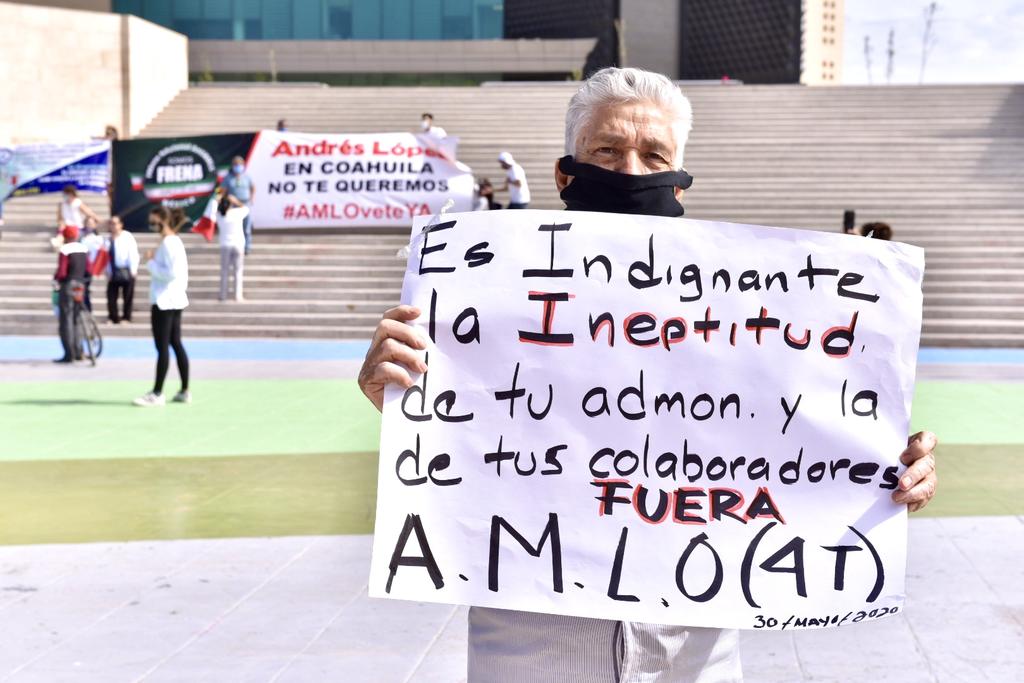 Andrés López
EN COAHUILA
NO TE QUEREMOS
#AMLOveteYA
SOMOS
FRENA
MÉXICO
Es Indignante
la Ineptitud.
de tu admon. y la
de tus colaboradores
FUERA
A.M.L.O(4T)
30/MAYO/2020